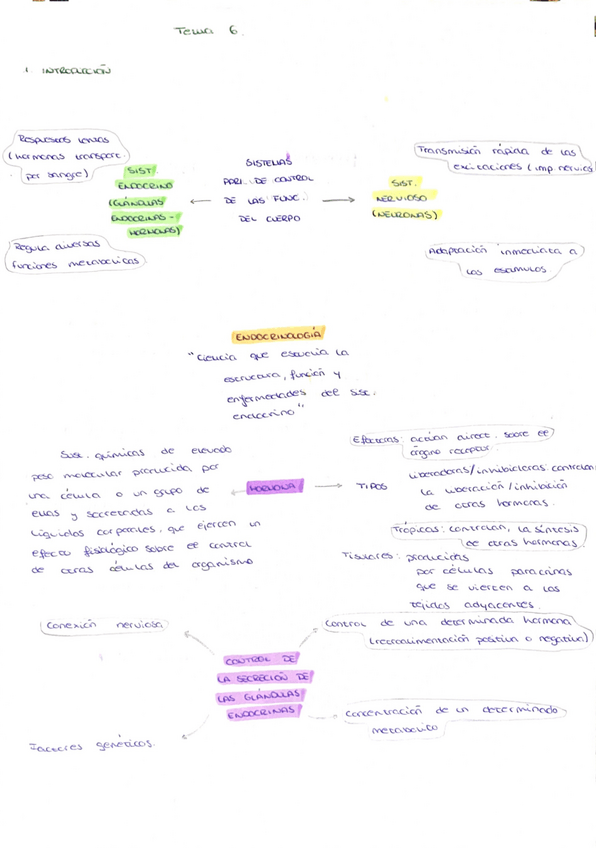 Tema 6.
1. INTRODUCCIÓN
Respuestas lentas
(hormonas transporte
por sangre)
SIST.
ENDOCRINO
(GLÁNDULAS
ENDOCRINAS -
HORMONAS)
Regula diversas
funciones metabólicas
SISTEMAS
PARA DE CONTROL
DE LAS FUNC.
DEL CUERPO
SIST.
NERVIOSO
(NEURONAS)
Transmisión rápida de las
excitaciones (imp nervios)
Adaptación inmediata a
los estímulos.
ENDOCRINOLOGÍA
"Ciencia que estudia la
estructura, función y
enfermedades del sist.
endocrino"
Sust. químicas de elevado
peso molecular producida por
una célula o un grupo de
ellas y secretadas a los
líquidos corporales, que ejercen un
efecto fisiológico sobre el control
de otras células del organismo
HORMONA
TIPOS
Efectoras: acción direct. sobre el
órgano receptor.
liberadoras/inhibidoras: controlan
la liberación/inhibición
de otras hormonas.
Trópicas: controlan, la síntesis
de otras hormonas.
Tisulares: producidas
por células paracrinas
que se vierten a los
tejidos adyacentes.
Conexión nerviosa
Factores genéticos.
CONTROL DE
LA SECRECIÓN DE
LAS GLÁNDULAS
ENDOCRINAS
Control de una determinada hormona
(retroalimentación positiva o negativa)
Concentración de un determinado
metabolito